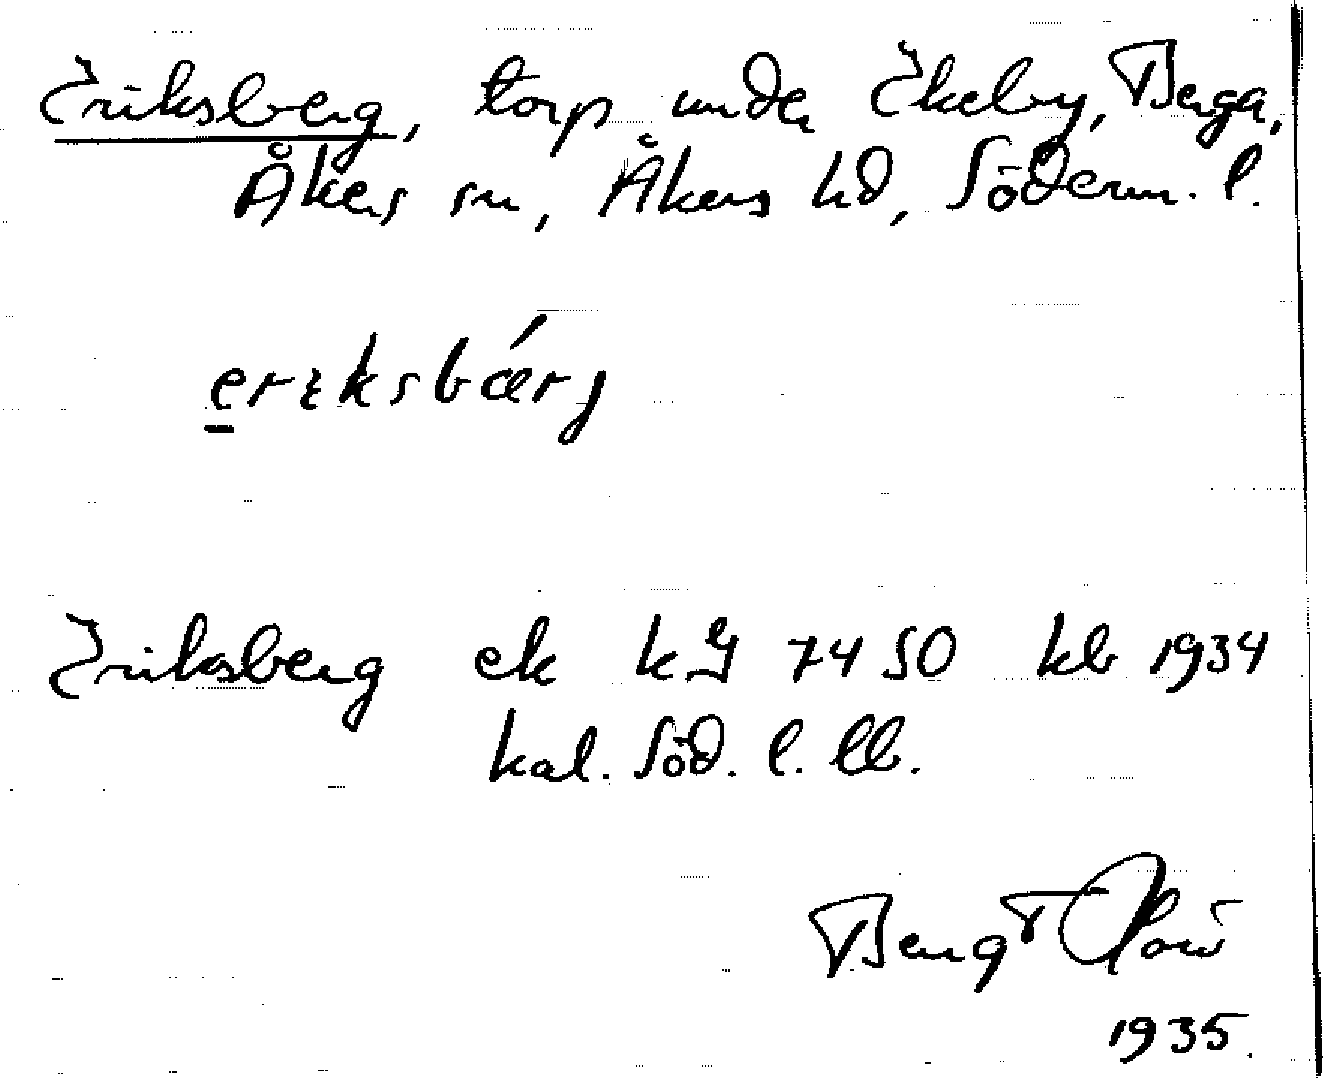 Eriksberg, torp under Ekeby, Berga,
Åkers sn, Åkers hd, Söderm. l.
erıksbǽrj
Eriksberg ek kg 7450 kb 1934
kal. Söd. l. ll.
Bengt
1935.